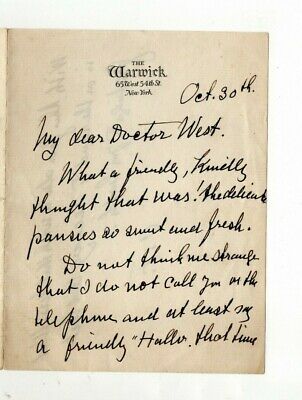 THE
Warwick
65 West 54th St.
New York
Oct. 30th.
My dear Doctor West.
What a friendly, kindly
thought that was! The delicate
pansies so sweet and fresh.
Do not think me strange
that I do not call you on the
telephone and at least say
a friendly "Hallo. that time